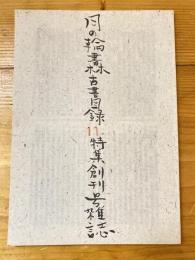 月の輪書林古書目録11特集創刊号雑誌